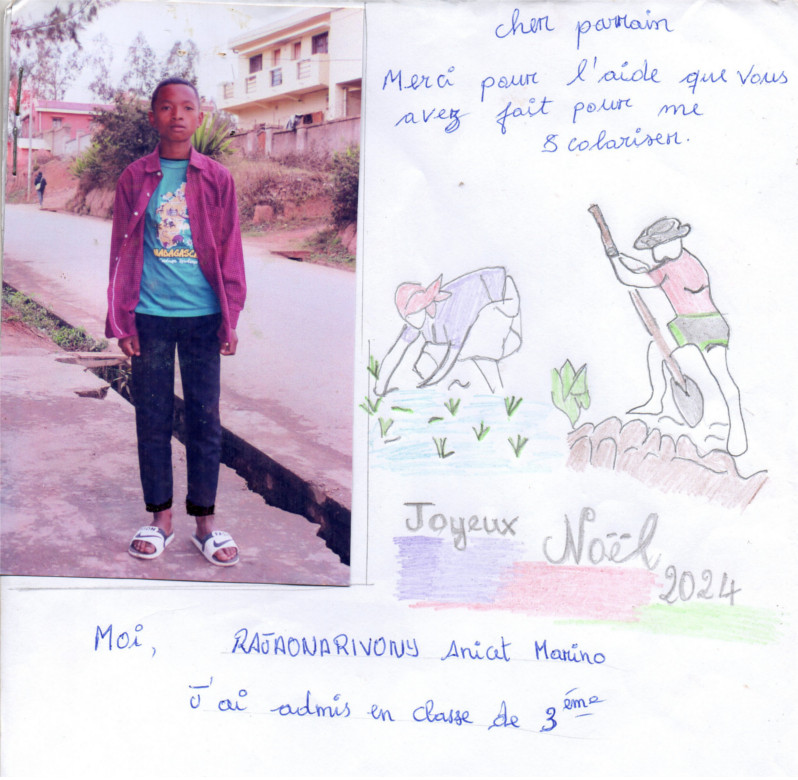 cher parrain
Merci pour l'aide que vous
avez fait pour me
scolariser.
MADAGASCAR
Joyeux
Noël
2024
Moi, RAJAONARIVONY Aniat Marino
J'ai admis en classe de 3ème